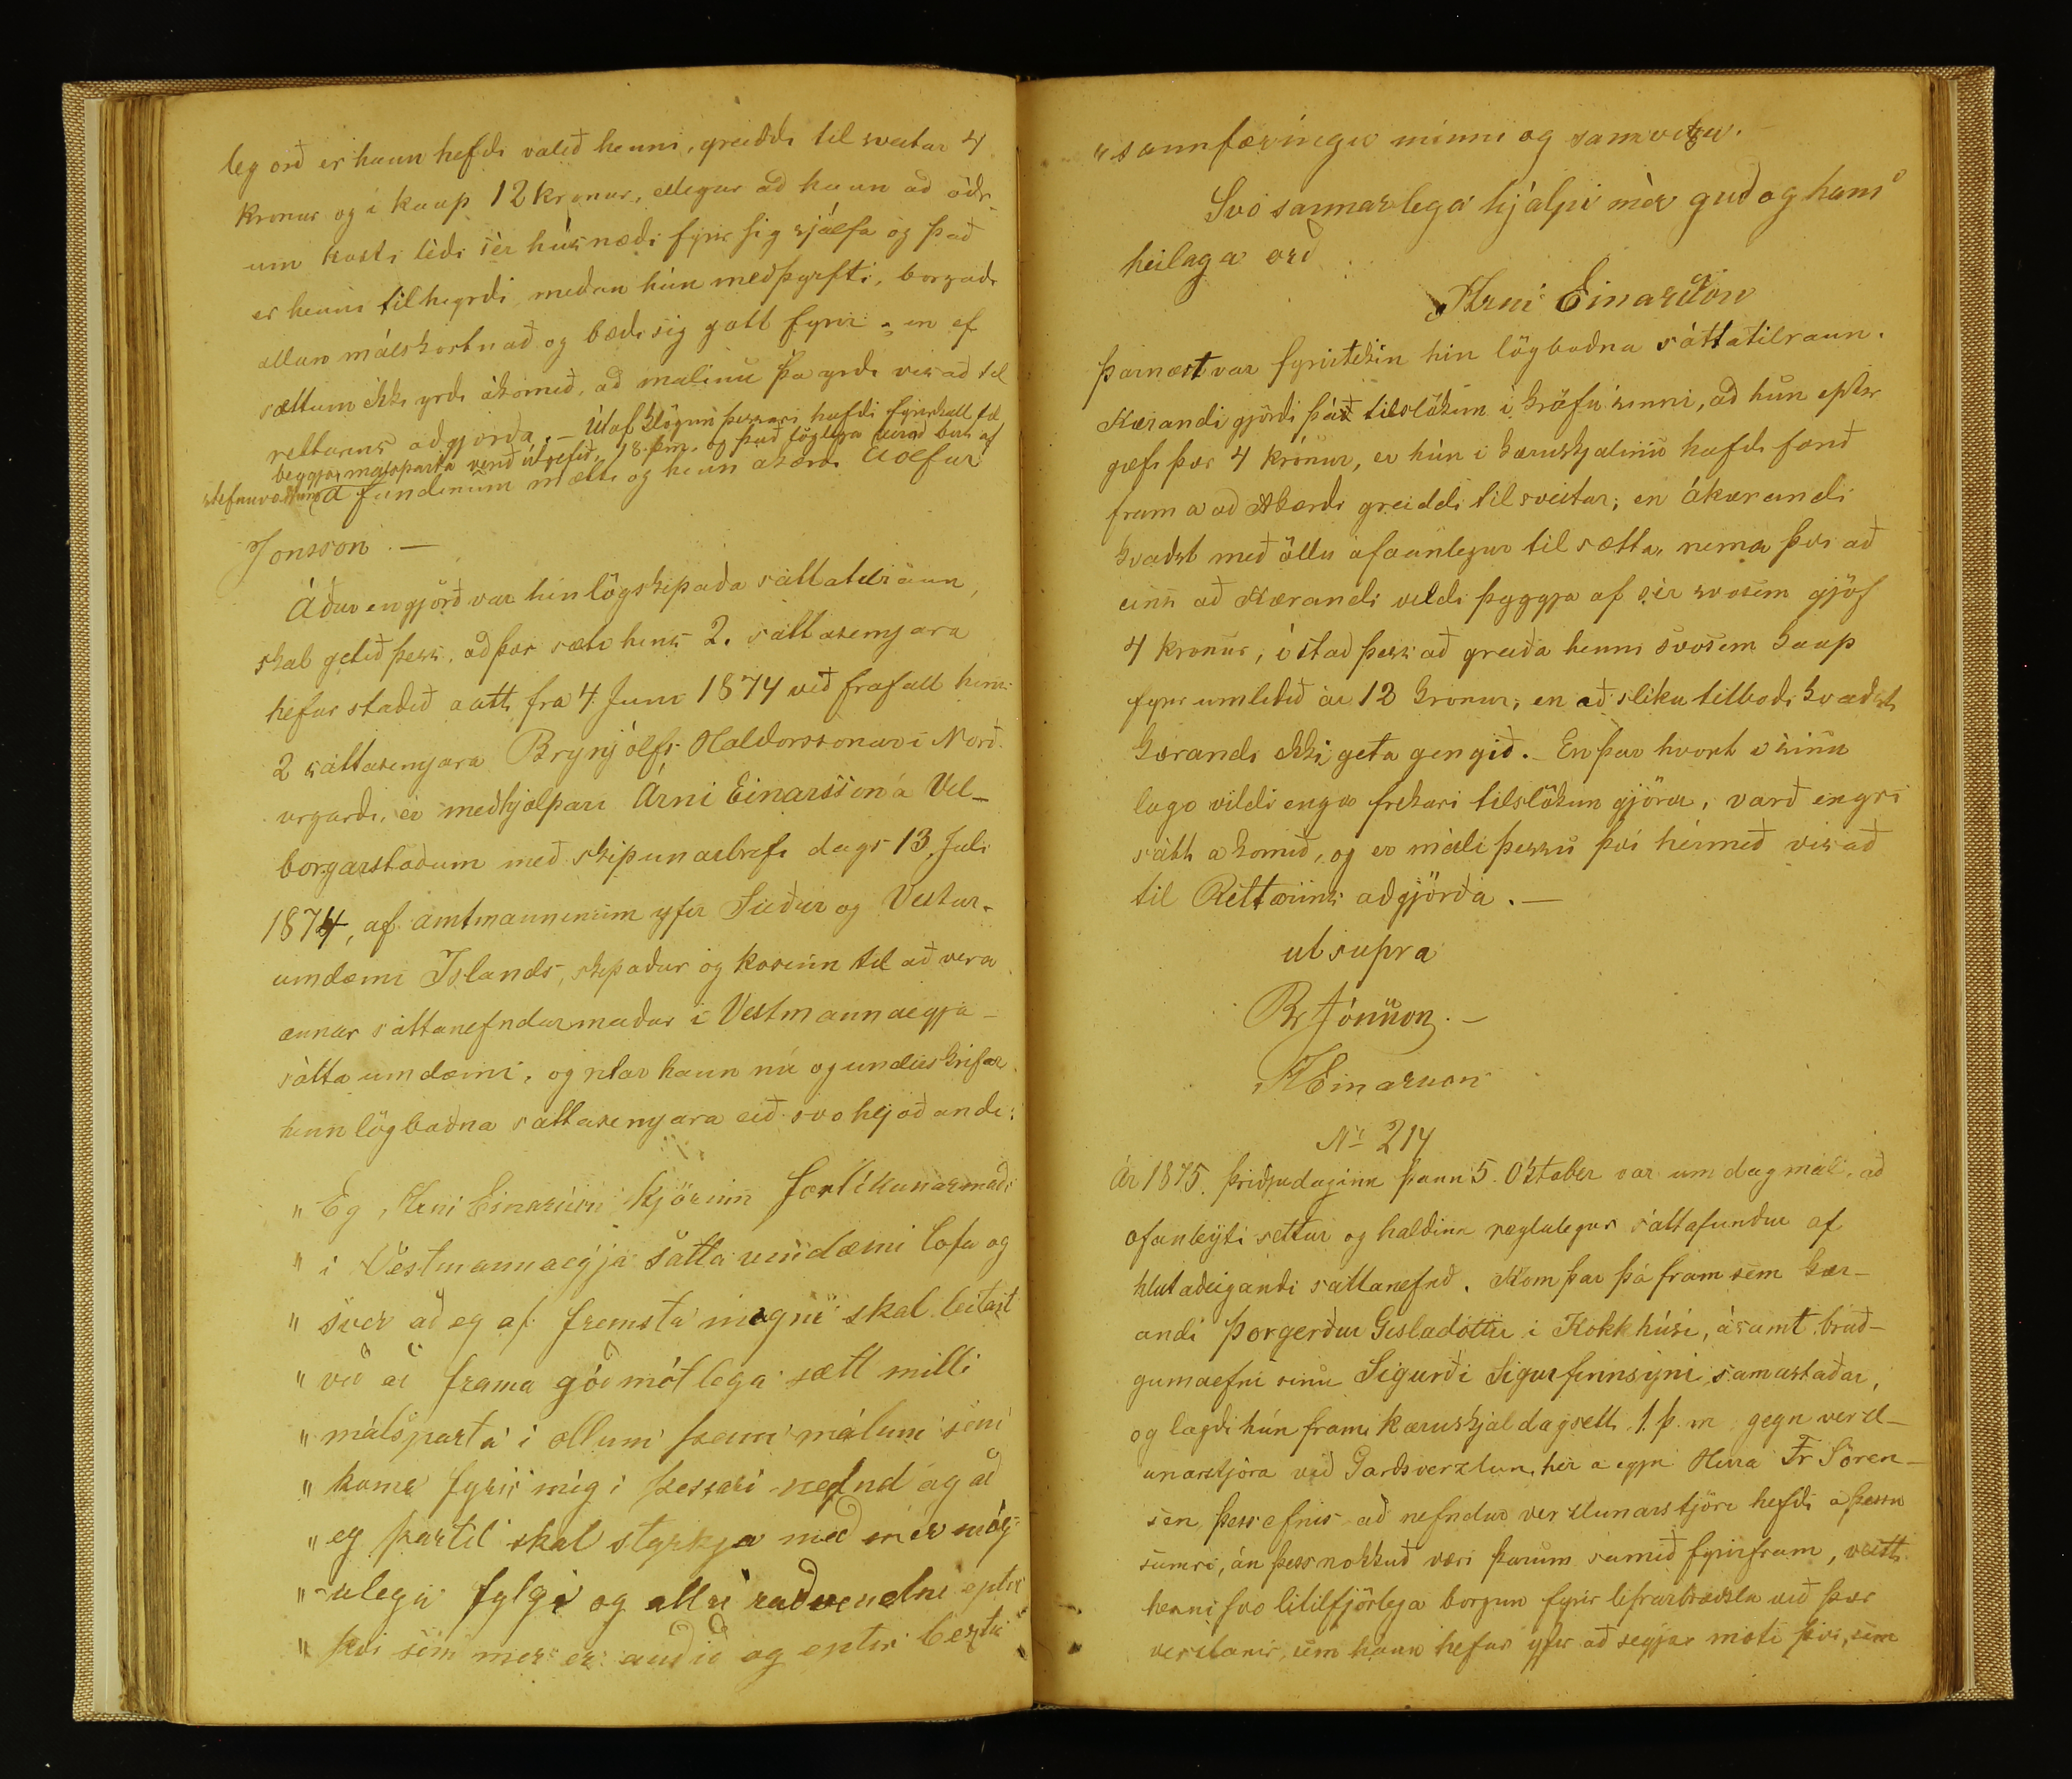 leg orð er hann hefði valið henni, greiddi til sveitar 4
kronur og i kaup 12 kronur, ellegar að hann að öðr-
um kosti léði sér húsnæði fyrir sig sjálfa og það
er henni tilheyrði meðan hún meðþyrfti, borgaði
allan málskostnað og bæði sig gott fyrir; en ef
sættum ekki yrði ákomið, að malinu þa yrði visað til
rettarins aðgjorða. — Útaf klögun þessari hafði fyrirkall til
beggja malsparta verið útgefið, 18. þ.m. og það löglega verið birt af
stefnuvottum Á fundinum mætti og hinn akærði Eiolfur
Jonsson. —
Áður en gjörð var hin lögskipaða sáttatilraun,
skal getið þess, að þar sæti hins 2. sáttasemjara
hefur staðið autt fra 4 Juni 1874 við frafall hins
2 sáttasemjara Brynjólfs Haldorssonar i Norð-
urgarði, er meðhjálpari Árni Einarsson á Vil-
borgarstoðum með skipunarbrefi dags 13. Juli
1874, af amtmanninum yfir Suður og Vestur-
umdæmi Islands, skipaður og kosinn til að vera
annar sáttanefndarmaður i Vestmannaeyja-
sátta umdæmi, og ritar hann nú og undirskrifar
hinn lögboðna sáttasemjara eið svo hljóðandi:
„ Eg, Arni Einarsson kjörinn forlíkunarmaðr
„ i Vestmannaeyja sátta umdæmi lofa og
„ sver að eg af fremsta megni skal leitast
„ við að frama góðmótlega sætt milli
„ málsparta i ollum þeim málum sem
„ koma fyrir mig i þessari nefnd og að
„ eg þartil skal styrkja með mér mög-
„ ulegu fylgi og allri raðvendni eptir
„ því sem mer er auðið og eptir beztu
„ sannfæringu minni og samvitzku.
Svo sannarlega hjálpi mér guð og hans
heilaga orð
Arni Einarsson
Þarnæst var fyrirtekin hin lögboðna sáttatilraun.
Kærandi gjörði þáð tilslökun i kröfu sinni, að hún eptir
gæfi þær 4 krónur, er hún i kæruskjalinu hafði farið
fram a að Akærði greiddi til sveitar; en ákærandi
kvaðst með öllu ófáanlegur til sætta, nema því að
eins að Kærandi vildi þyggja af sér svosem gjöf
4 kronur, i stað þess að greiða henni svosem kaup
fyrir umliðið ár 12 kronur; en að sliku tilboði kvaðst
kærandi ekki geta gengið. — En þar hvort i sinu
lagi vildi enga frekari tilslökun gjöra, varð engri
sátt a komið, og er máli þessu því hérmeð visað
til Rettarins aðgjörða. —
ut supra
Br Jónsson. —
AEinarsson
Nr 214
Ár 1875. þriðjudaginn þann 5. Oktober var um dagmál, að
Ofanleyti settur og haldinn reglulegur sáttafundur af
hlutaðeigandi sáttanefnd. Kom þar þá fram sem kær-
andi Þorgerður Gisladottir i Kokkhúsi, ásamt brúð-
gumaefni sinu Sigurði Sigurfinnsyni, samastaðar,
og lagði hún fram kæruskjal dagsett 1. þ. m gegn verzl-
unarstjóra við Garðsverzlun, hér a eyju Herra Fr Sören-
sen þess efnis að nefndur verzlunarstjóri hefði a þessu
sumri, án þess nokkuð væri þarum samið fyrirfram, veitt
henni svo litilfjörlega borgun fyrir lifrarbræðslu við þær
verzlanir, sem hann hefur yfir að segja, moti því, sem